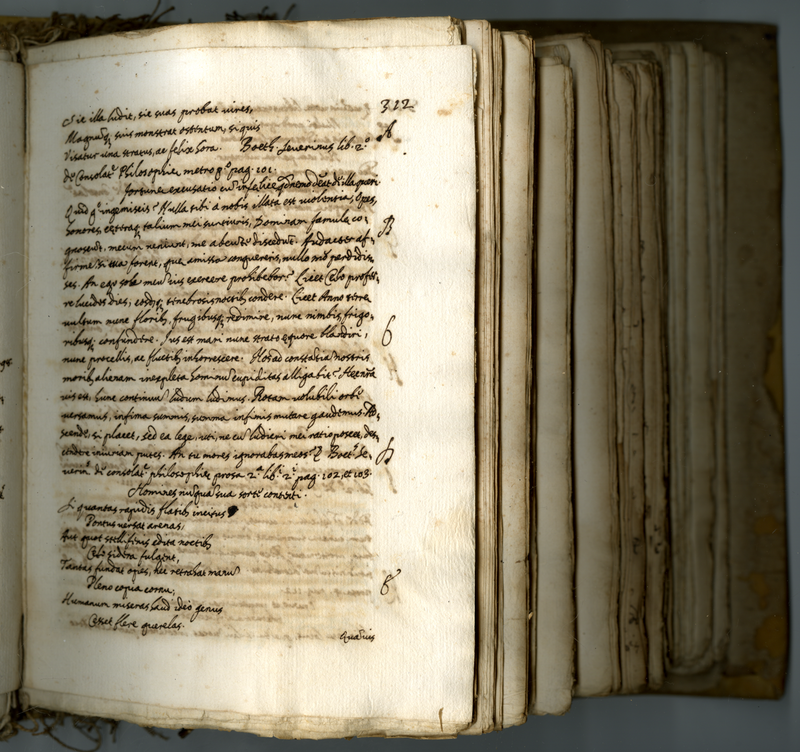 312
Sic illa ludit, sic suas probat vires,
Magnaq; suis monstrat ostentum, si quis
Visatur una stratus, ac felix hora. Boeth. Severinus lib. 2.º
A
de Consolat.e Philosophiæ metro p.º pag. 101.
fortunæ excusatio cu' infelice
Quid g.º ingemiscis? Nulla tibi à nobis illata est violentia, Opes,
honores, ceteraq; talium mei sunt iuris, Dominam famulæ co-
B
gnoscunt, mecum veniunt, me abeunte discedunt. Audacter af-
firmem si tua forent, quæ amissa conquereris, nullo modo perdidis-
ses. An ego sola meu' ius exercere prohibebor? Licet Celo profer-
re lucidos dies, eosdq; tenebrosis noctib; condere. Licet Anno terræ
vultum nunc florib; frugibusq; redimire, nunc nimbis, frigo-
ribusq; confundere. Ius est mari nunc strato equore blandiri,
C
nunc procellis, ac fluctib; inhorrescere. Nos ad constatia' nostris
morib; alienam inexpleta hominu' cupiditas alligabit? Hec nra
vis est, hunc continuu' ludum ludimus. Rotam volubili orbe
versamus, infima summis, summa infimis mutare gaudemus. As-
scende, si placet, sed ea lege, uti, ne cu' ludicri mei ratio poscet, des-
cendere iniuriam putes. An tu mores ignorabas meos? Boet. Se-
D
verin. de consolat.e philosophiæ prosa 2.a lib. 2.º pag. 102, et 103.
Homines nuqua' sua sorte contenti.
Si quantas rapidis flatib; incitus
Pontus versat arenas,
Aut quot stelliferis edita noctib;
Celo sidera fulgent,
Tantas fundat opes, nec retrahat manu'
Pleno copia cornu,
E
Humanum miseras haud ideo genus
Cesset flere querelas.
Quavis